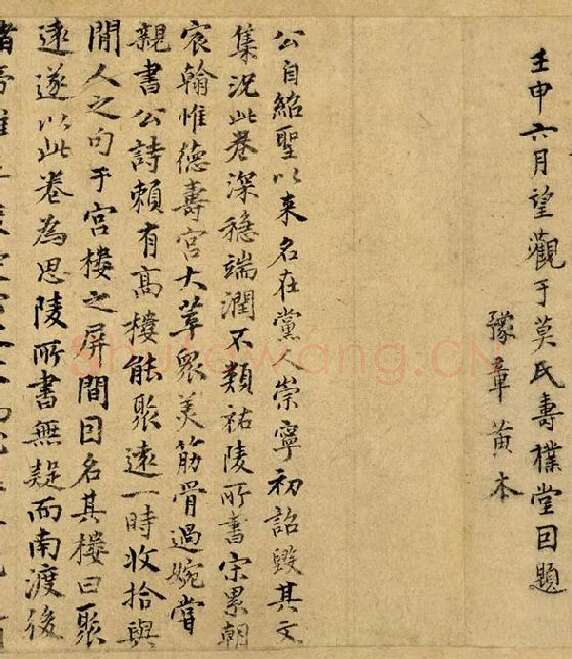 壬申六月望觀于莫氏壽樸堂因題
豫章黃本
公自紹聖以來名在黨人崇寧初詔毀其文
集況此卷深穩端潤不類祐陵所書宋累朝
宸翰惟德壽宮大草眾美筋骨過婉嘗
親書公詩賴有高樓能聚遠一時收拾與
閒人之句于宮樓之屏間因名其樓曰聚
遠遂以此卷為思陵所書無疑而南渡後
Shufawang.CN